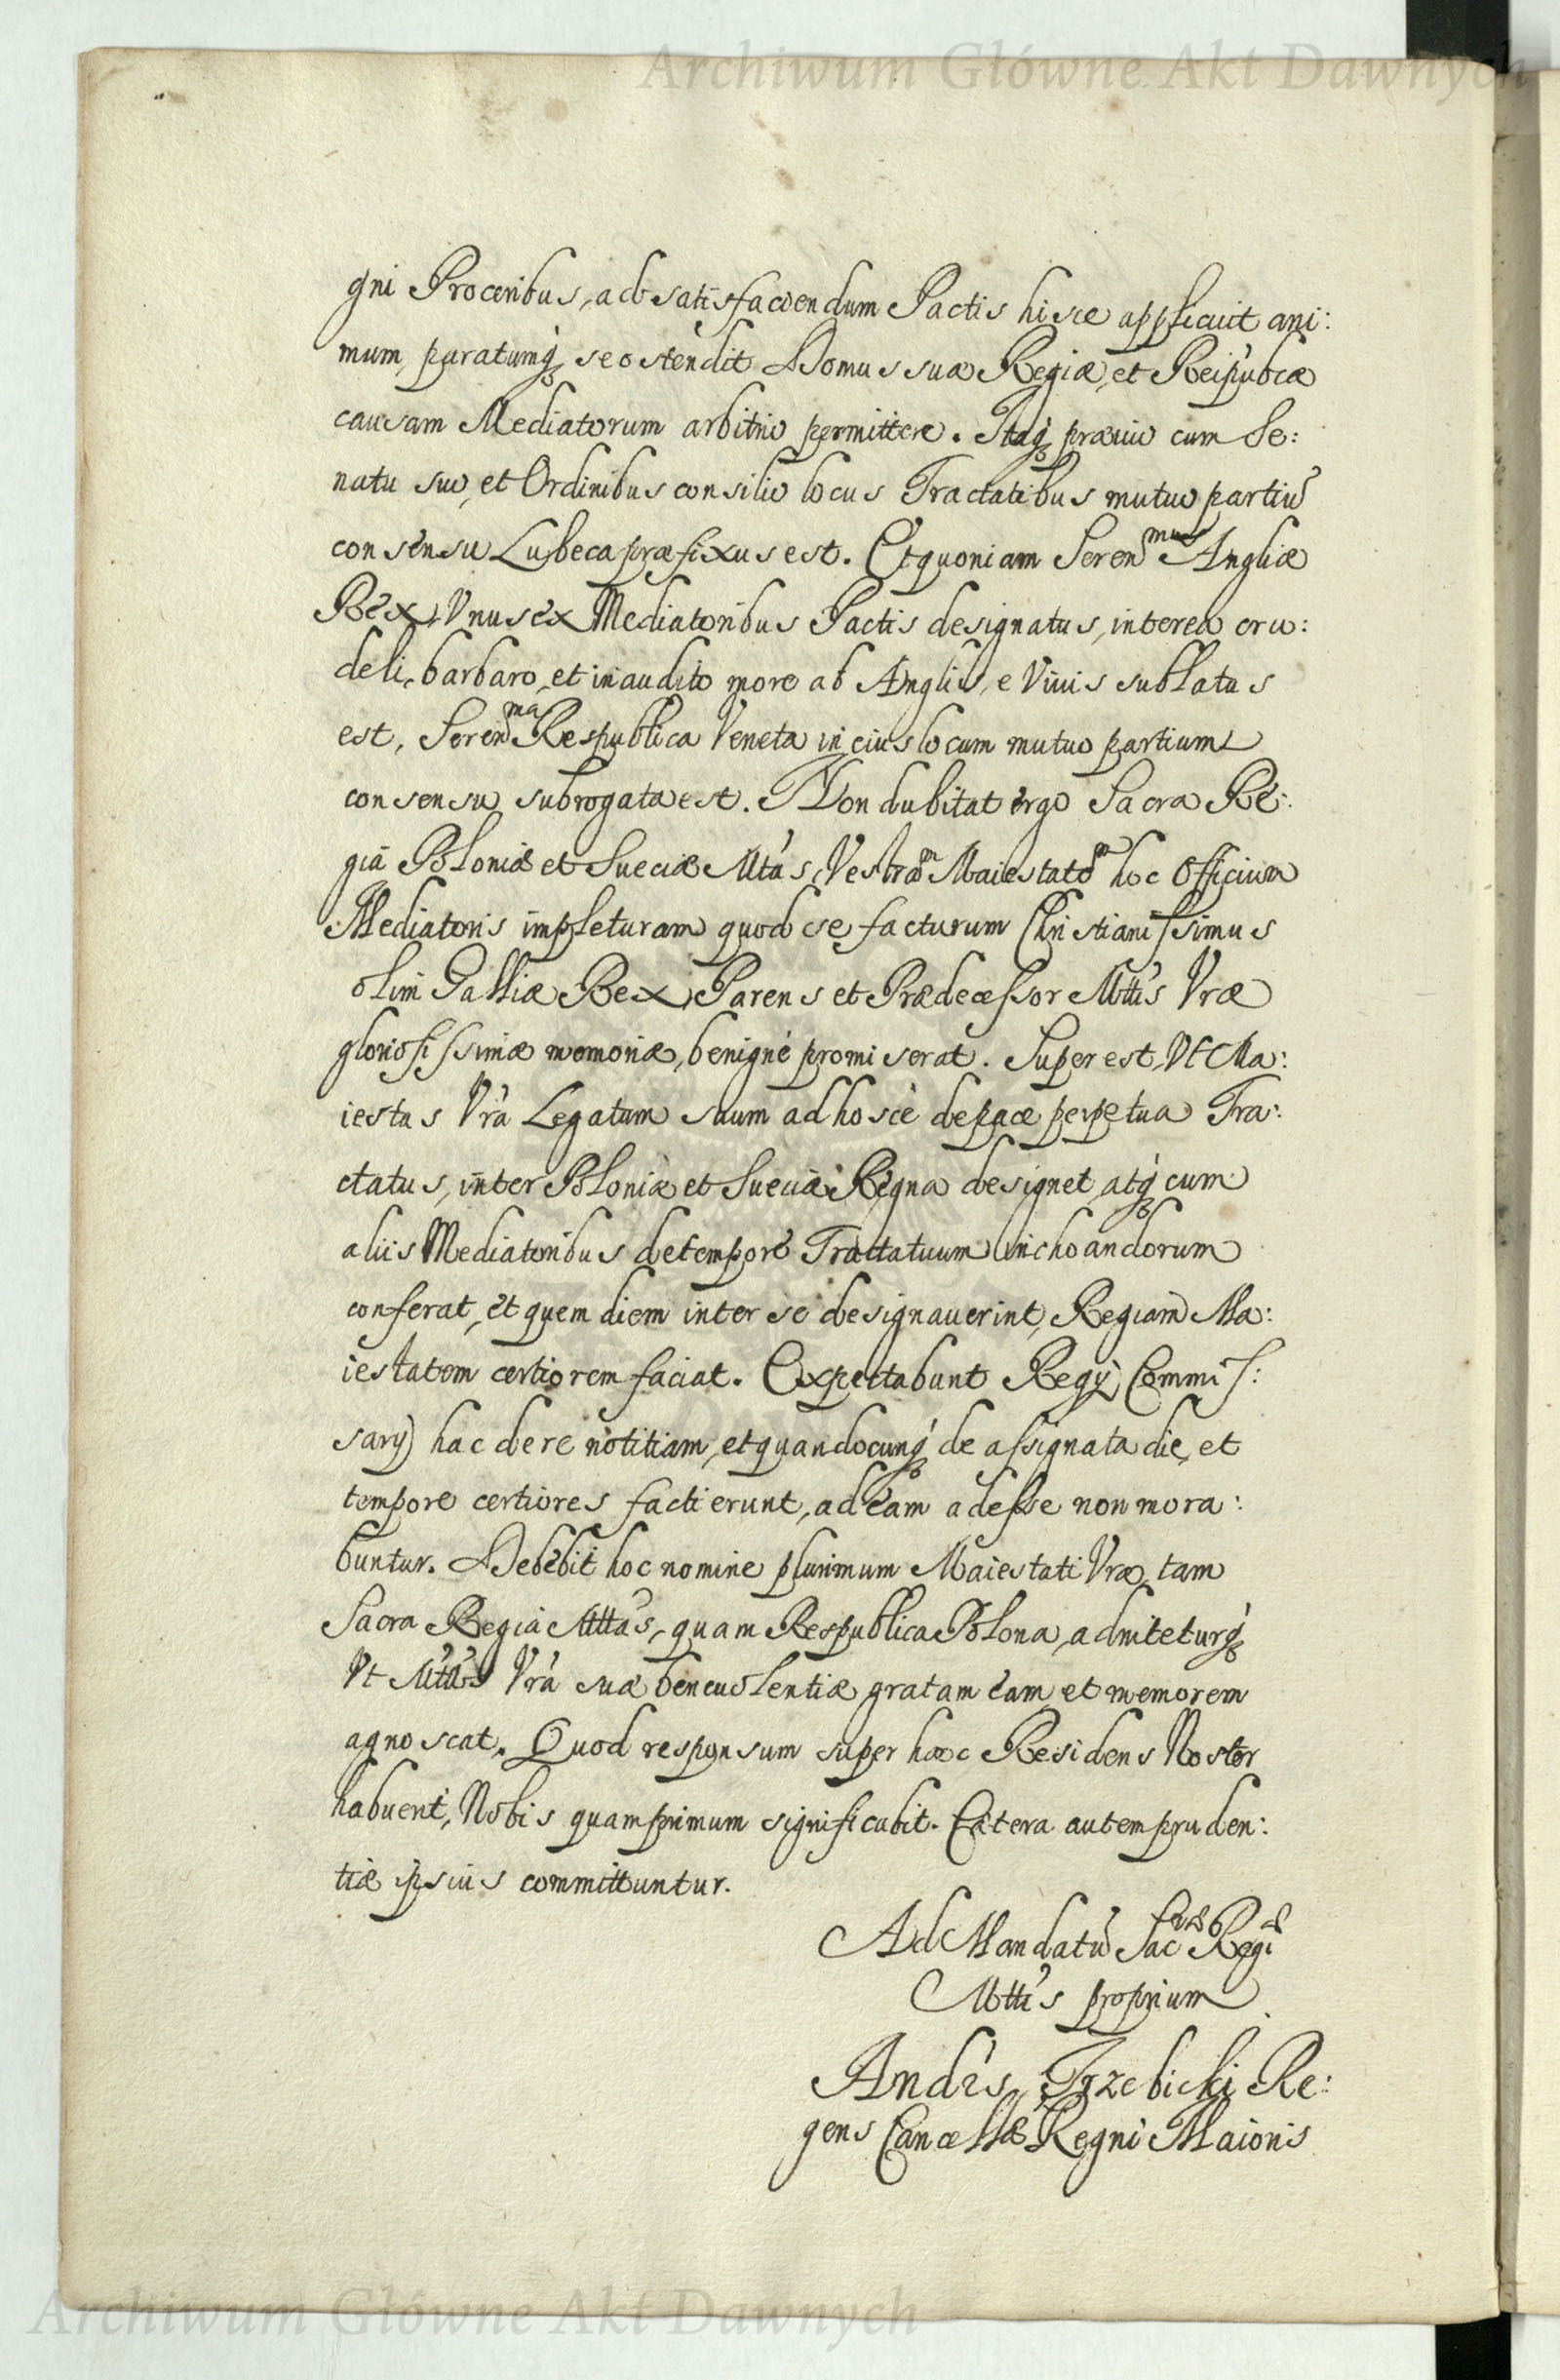 Archiwum Główne Akt Dawnych
gni Proceribus, ad satisfaciendum Pactis hisce applicuit ani:
mum, paratumq; se ostendit Domus suæ Regiæ, et Reipubcæ
causam Mediatorum arbitrio permittere. Itaq; præuio cum Se:
natu suo, et Ordinibus consilio locus Tractatibus mutuo partiũ
consensu Lubeca præfixus est. Et quoniam Serenmus Angliæ
Rex, Vnus ex Mediatoribus Pactis designatus, interea cru:
deli, barbaro, et inaudito more ab Anglis, e Viuis sublatus
est, Serenma Respublica Veneta in eius locum mutuo partium
consensu subrogata est. Non dubitat ergo Sacra Re:
gia Poloniæ et Sueciæ Mtas, Vestram Maiestatem hoc Officium
Mediatoris impleturam quod se facturum Christianissimus
olim Galliæ Rex, Parens et Prædecessor Mttis Vræ
gloriosissimæ memoriæ, benigne promiserat. Superest, Vt Ma:
iestas Vra Legatum suum ad hosce de pace perpetua Tra:
ctatus, inter Poloniæ et Sueciæ Regna designet, atq; cum
aliis Mediatoribus de tempore Tractatuum inchoandorum
conferat, et quem diem inter se designauerint, Regiam Ma:
iestatem certiorem faciat. Expectabunt Regij Commis:
sarij hac de re notitiam, et quandocunq; de assignata die, et
tempore certiores facti erunt, ad eam adesse non mora:
buntur. Debebit hoc nomine plurimum Maiestati Vræ, tam
Sacra Regia Mttas, quam Respublica Polona, adniteturq;
Vt Mttas Vra suæ beneuolentiæ gratam eam et memorem
agnoscat. Quod responsum super hæc Residens Noster
habuerit, Nobis quamprimum significabit. Cætera autem pruden:
tiæ ipsius committuntur.
Ad Mandatũ Sacræ Regiæ
Mttis proprium
Andrs Trzebicki Re:
gens Cancellæ Regni Maioris
Archiwum Główne Akt Dawnych